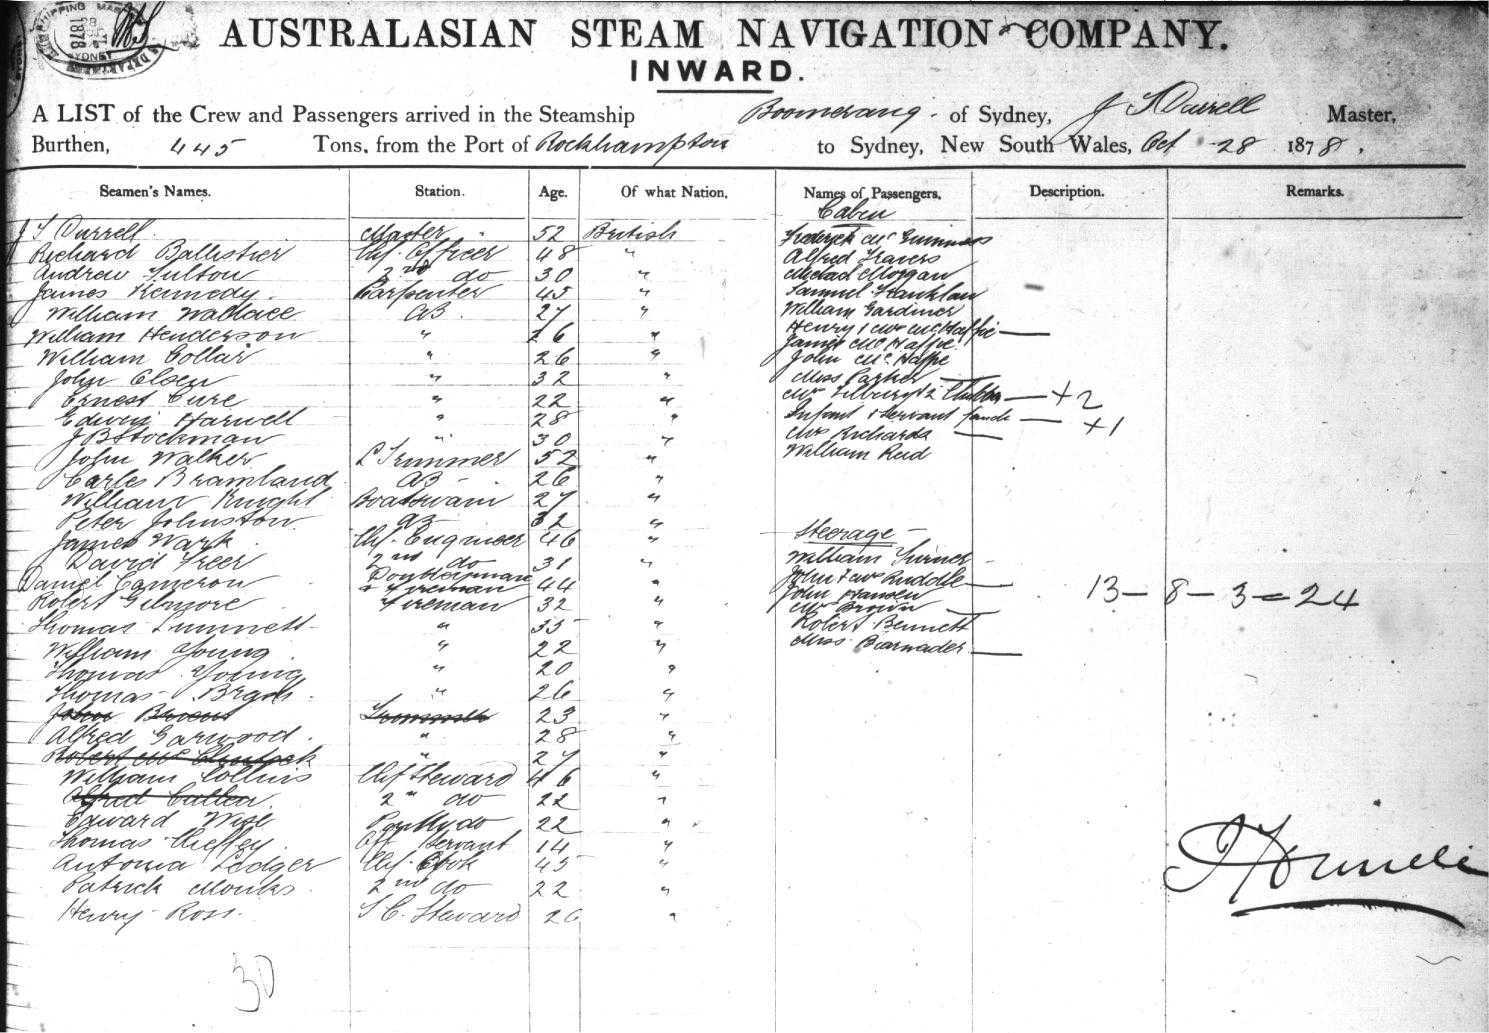 SHIPPING MAS
1878
SYDNEY
DEPARTMENT
AUSTRALASIAN STEAM NAVIGATION COMPANY.
INWARD.
A LIST of the Crew and Passengers arrived in the Steamship Boomerang of Sydney, J S Durrell Master,
Burthen, 445 Tons, from the Port of Rockhampton to Sydney, New South Wales, Oct 28 1878.
Seamen's Names. Station. Age. Of what Nation. Names of Passengers. Description. Remarks.
Caben
J S Durrell Master 52 British
Richard Ballister Chf. Officer 48 "
Andrew Fulton 2nd do 30 "
James Kennedy Carpenter 45 "
William Wallace AB 27 "
William Henderson " 26 "
William Collar " 26 "
John Olsen " 32 "
Ernest Cure " 22 "
Edwin Harwell " 28 "
J B Stockman " 30 "
John Walker L Trimmer 52 "
Carles Bramland AB 26 "
William Knight Boatswain 27 "
Peter Johnston AB 32 "
James Wark Chf. Engineer 46 "
David Freer 2nd do 31 "
Daniel Cameron Donkeyman & Fireman 44 "
Robert Gilmore Fireman 32 "
Thomas " 35 "
William Young " 22 "
Thomas Young " 20 "
Thomas " 26 "
John Brown Trimmer 23 "
Alfred Garwood " 28 "
Robert Mc Clintock " 27 "
William Collins Chf Steward 46 "
Alfred Cullen 2" do 22 "
Edward Wise Pantry do 22 "
Thomas Servant 14 "
Antonia Ledger Chf. Cook 45 "
Patrick Monks 2nd do 22 "
Henry Ross S C. Steward 26 "
30
Frederick Mc
Alfred Travers
Morgan
Samuel
William Gardiner
Henry & Mrs McHaffie
James McHaffie
John McHaffie
Miss Parker
Mrs Tilbury & 2 — +2
Infant & Servant — +1
Mrs Richards
William Reid
Steerage
William Turner
John & Mrs Ruddle
John Hansen
Mrs Brown
Robert Bennett
Miss
13 – 8 – 3 = 24